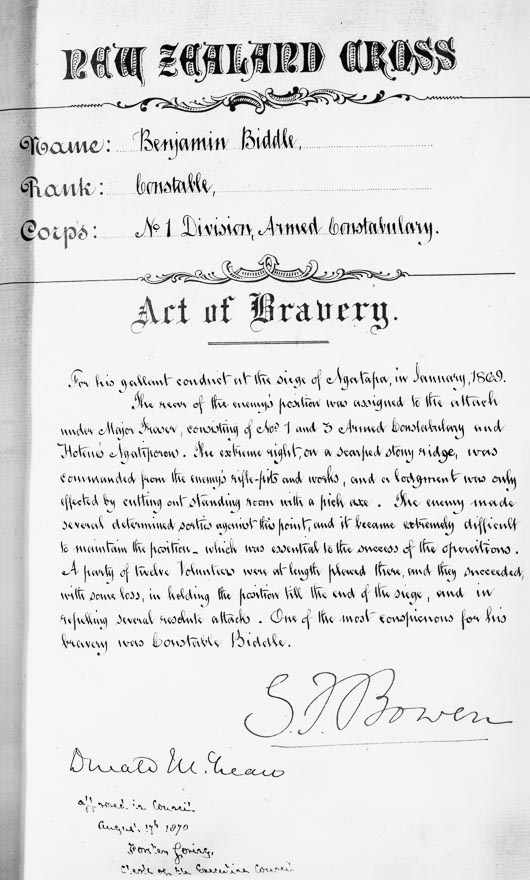 NEW ZEALAND CROSS
Name: Benjamin Biddle,
Rank: Constable,
Corps: No 1 Division, Armed Constabulary.
Act of Bravery.
For his gallant conduct at the siege of Ngatapa, in January, 1869.
The rear of the enemy's position was assigned to the attack
under Major Fraser, consisting of Nos 1 and 3 Armed Constabulary and
Hotene's Ngatiporou. The extreme right, on a scarped stony ridge, was
commanded from the enemy's rifle-pits and works, and a lodgment was only
effected by cutting out standing room with a pick axe. The enemy made
several determined sorties against this point, and it became extremely difficult
to maintain the position - which was essential to the success of the operations.
A party of twelve Volunteers were at length placed there, and they succeeded,
with some loss, in holding the position till the end of the siege, and in
repelling several resolute attacks. One of the most conspicuous for his
bravery was Constable Biddle.
G. F. Bowen
Donald McLean
Approved in Council
August 17th 1870
Forster Goring,
Clerk of the Executive Council